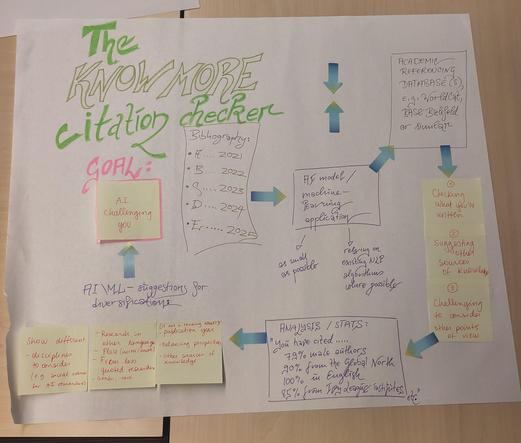 The
KNOWMORE
citation checker
GOAL:
A.I.
challenging
you
Bibliography:
• F.... 2021
• B.... 2022
• G.... 2023
• D.... 2024
• E...... 2025
AI model /
machine-
learning
application
as small
as possible
relying on
existing NLP
algorithms
where possible
ACADEMIC
REFERENCING
DATABASE(S)
e.g. WorldCat,
BASE Bielefeld
or
①
Checking
what you've
written
②
Suggesting
other
sources of
knowledge
③
Challenging
to consider
other points
of view
ANALYSIS / STATS:
"You have cited.....
79% male authors
90% from the Global North
100% in English
85% from Ivy League Institutes
etc."
AI \ ML - suggestions for
diversifications
Show different
- disciplines
to consider
- Research in
other languages
- From less
quoted researchers
publication year
- balancing perspectives
- Other sources of
knowledge